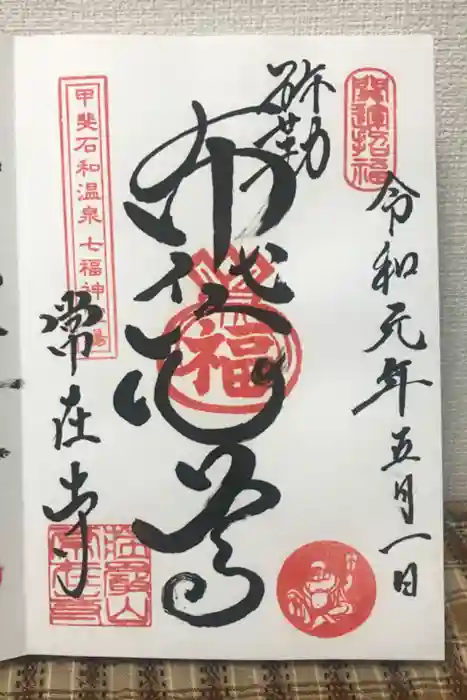 開運招福
令和元年五月一日
弥勒
布袋尊
福
甲斐石和温泉七福神霊場
常在寺